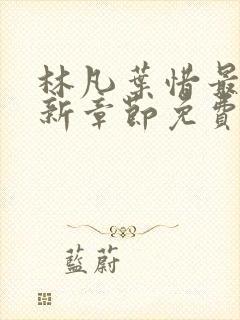 林凡葉惜最
新章節免費
藍蔚